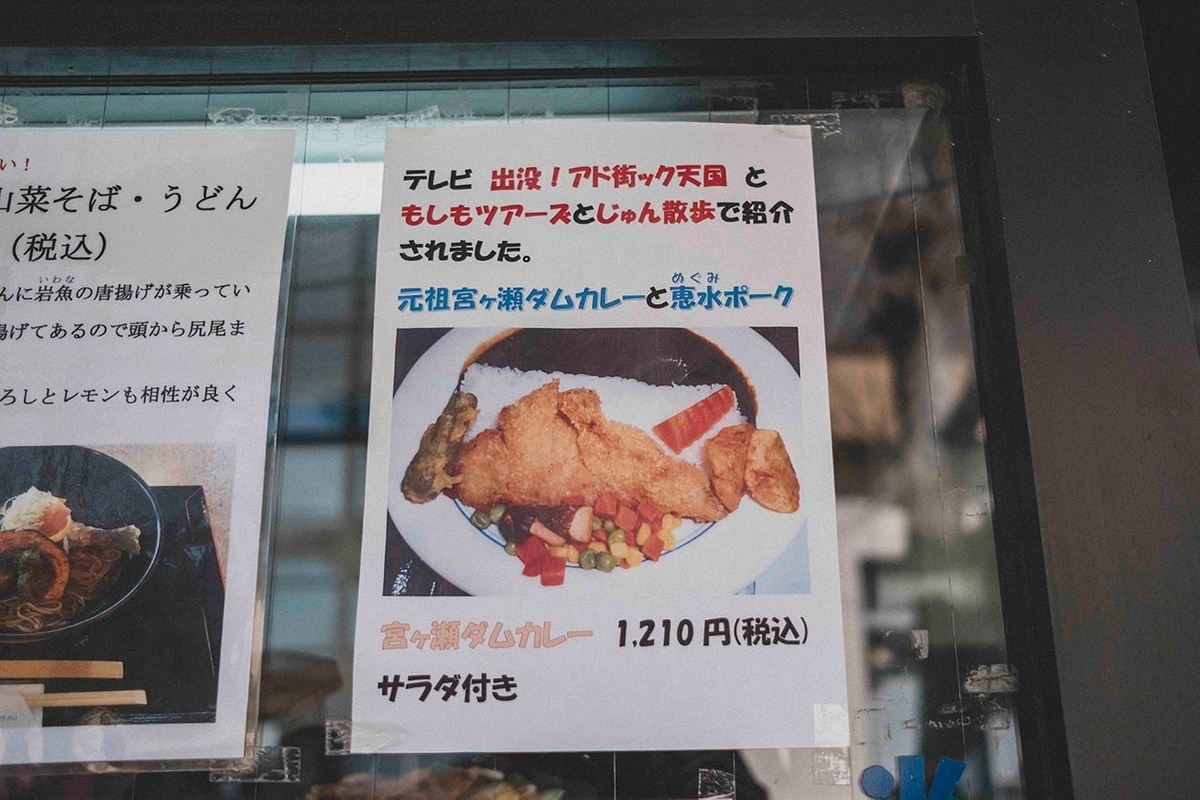 い！
山菜そば・うどん
（税込）
いわな
んに岩魚の唐揚げが乗ってい
揚げてあるので頭から尻尾ま
ろしとレモンも相性が良く
テレビ 出没！アド街ック天国 と
もしもツアーズとじゅん散歩で紹介
されました。
めぐみ
元祖宮ヶ瀬ダムカレーと恵水ポーク
宮ヶ瀬ダムカレー 1,210円(税込)
サラダ付き